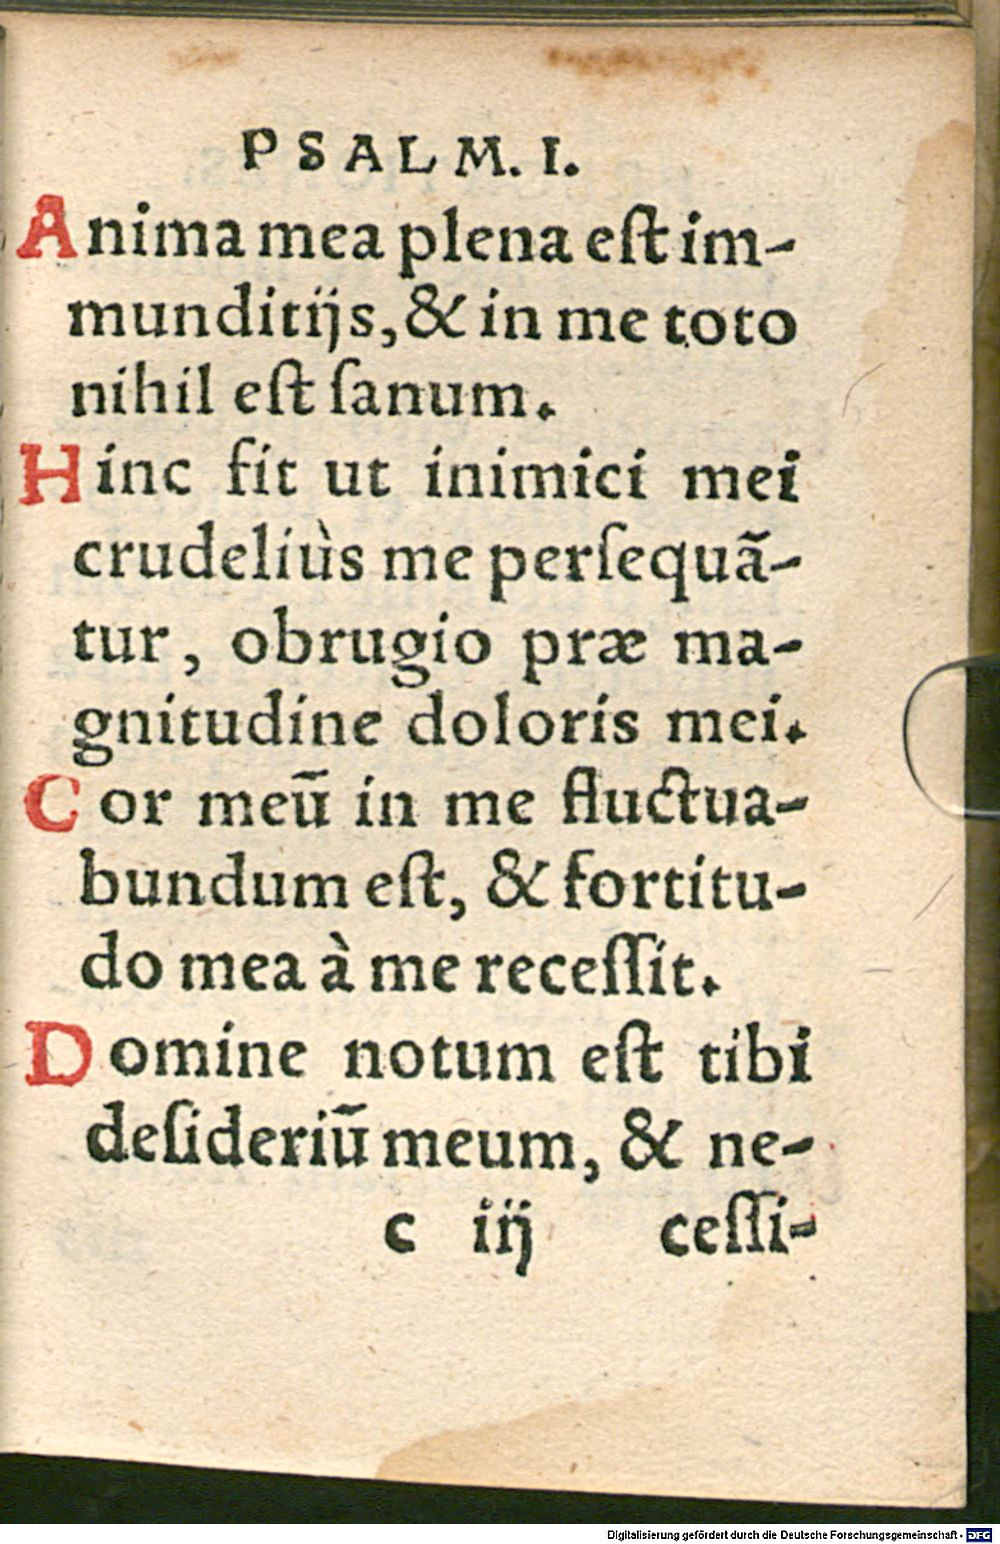 PSALM. I.
Anima mea plena eſt im-
munditijs, & in me toto
nihil eſt ſanum.
Hinc fit ut inimici mei
crudeliùs me perſequã-
tur, obrugio præ ma-
gnitudine doloris mei.
Cor meũ in me fluctua-
bundum eſt, & fortitu-
do mea à me receſſit.
Domine notum eſt tibi
deſideriũ meum, & ne-
c iij ceſſi-
Digitalisierung gefördert durch die Deutsche Forschungsgemeinschaft - DFG